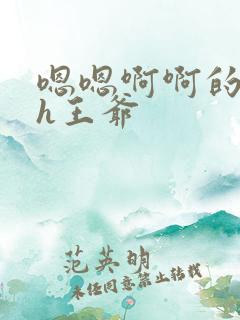 嗯嗯啊啊的
h王爷
范英明
未经同意禁止转载